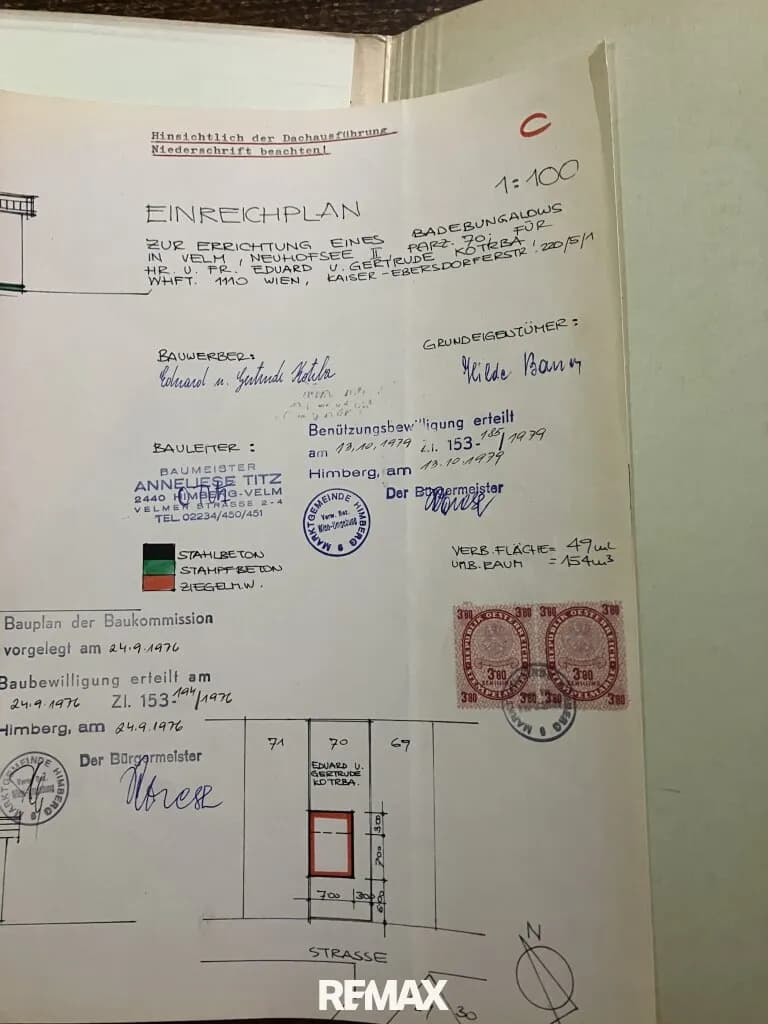 Hinsichtlich der Dachausführung
Niederschrift beachten!
C
1:100
EINREICHPLAN
ZUR ERRICHTUNG EINES BADEBUNGALOWS
IN VELM, NEUHOFSEE II, PARZ. 70, FÜR
HR. U. FR. EDUARD U. GERTRUDE KOTRBA
WHFT. 1110 WIEN, KAISER-EBERSDORFERSTR. 220/5/1
BAUWERBER:
Eduard u. Gertrude Kotrba
GRUNDEIGENTÜMER:
Hilde
Benützungsbewilligung erteilt
am 13.10.1979 Zl. 153-185/1979
Himberg, am 13.10.1979
Der Bürgermeister
BAULEITER:
BAUMEISTER
ANNELIESE TITZ
2440 HIMBERG-VELM
VELMER STRASSE 2-4
TEL. 02234/450/451
MARKTGEMEINDE HIMBERG
Verw. Bez.
Wien-Umgebung
STAHLBETON
STAMPFBETON
ZIEGELM.W.
VERB. FLÄCHE= 49m²
UMB. RAUM = 154m³
Bauplan der Baukommission
vorgelegt am 24.9.1976
Baubewilligung erteilt am
24.9.1976 Zl. 153-194/1976
Himberg, am 24.9.1976
Der Bürgermeister
MARKTGEMEINDE HIMBERG
3'80 3'80 3'80 3'80
REPUBLIK OESTERREICH
REPUBLIK OESTERREICH
3'80 3'80
SCHILLING SCHILLING
STEMPELMARKE STEMPELMARKE
3'80 3'80
71 70 69
EDUARD U.
GERTRUDE
KOTRBA.
300
700
700 300
600
STRASSE
N
31 30
REMAX